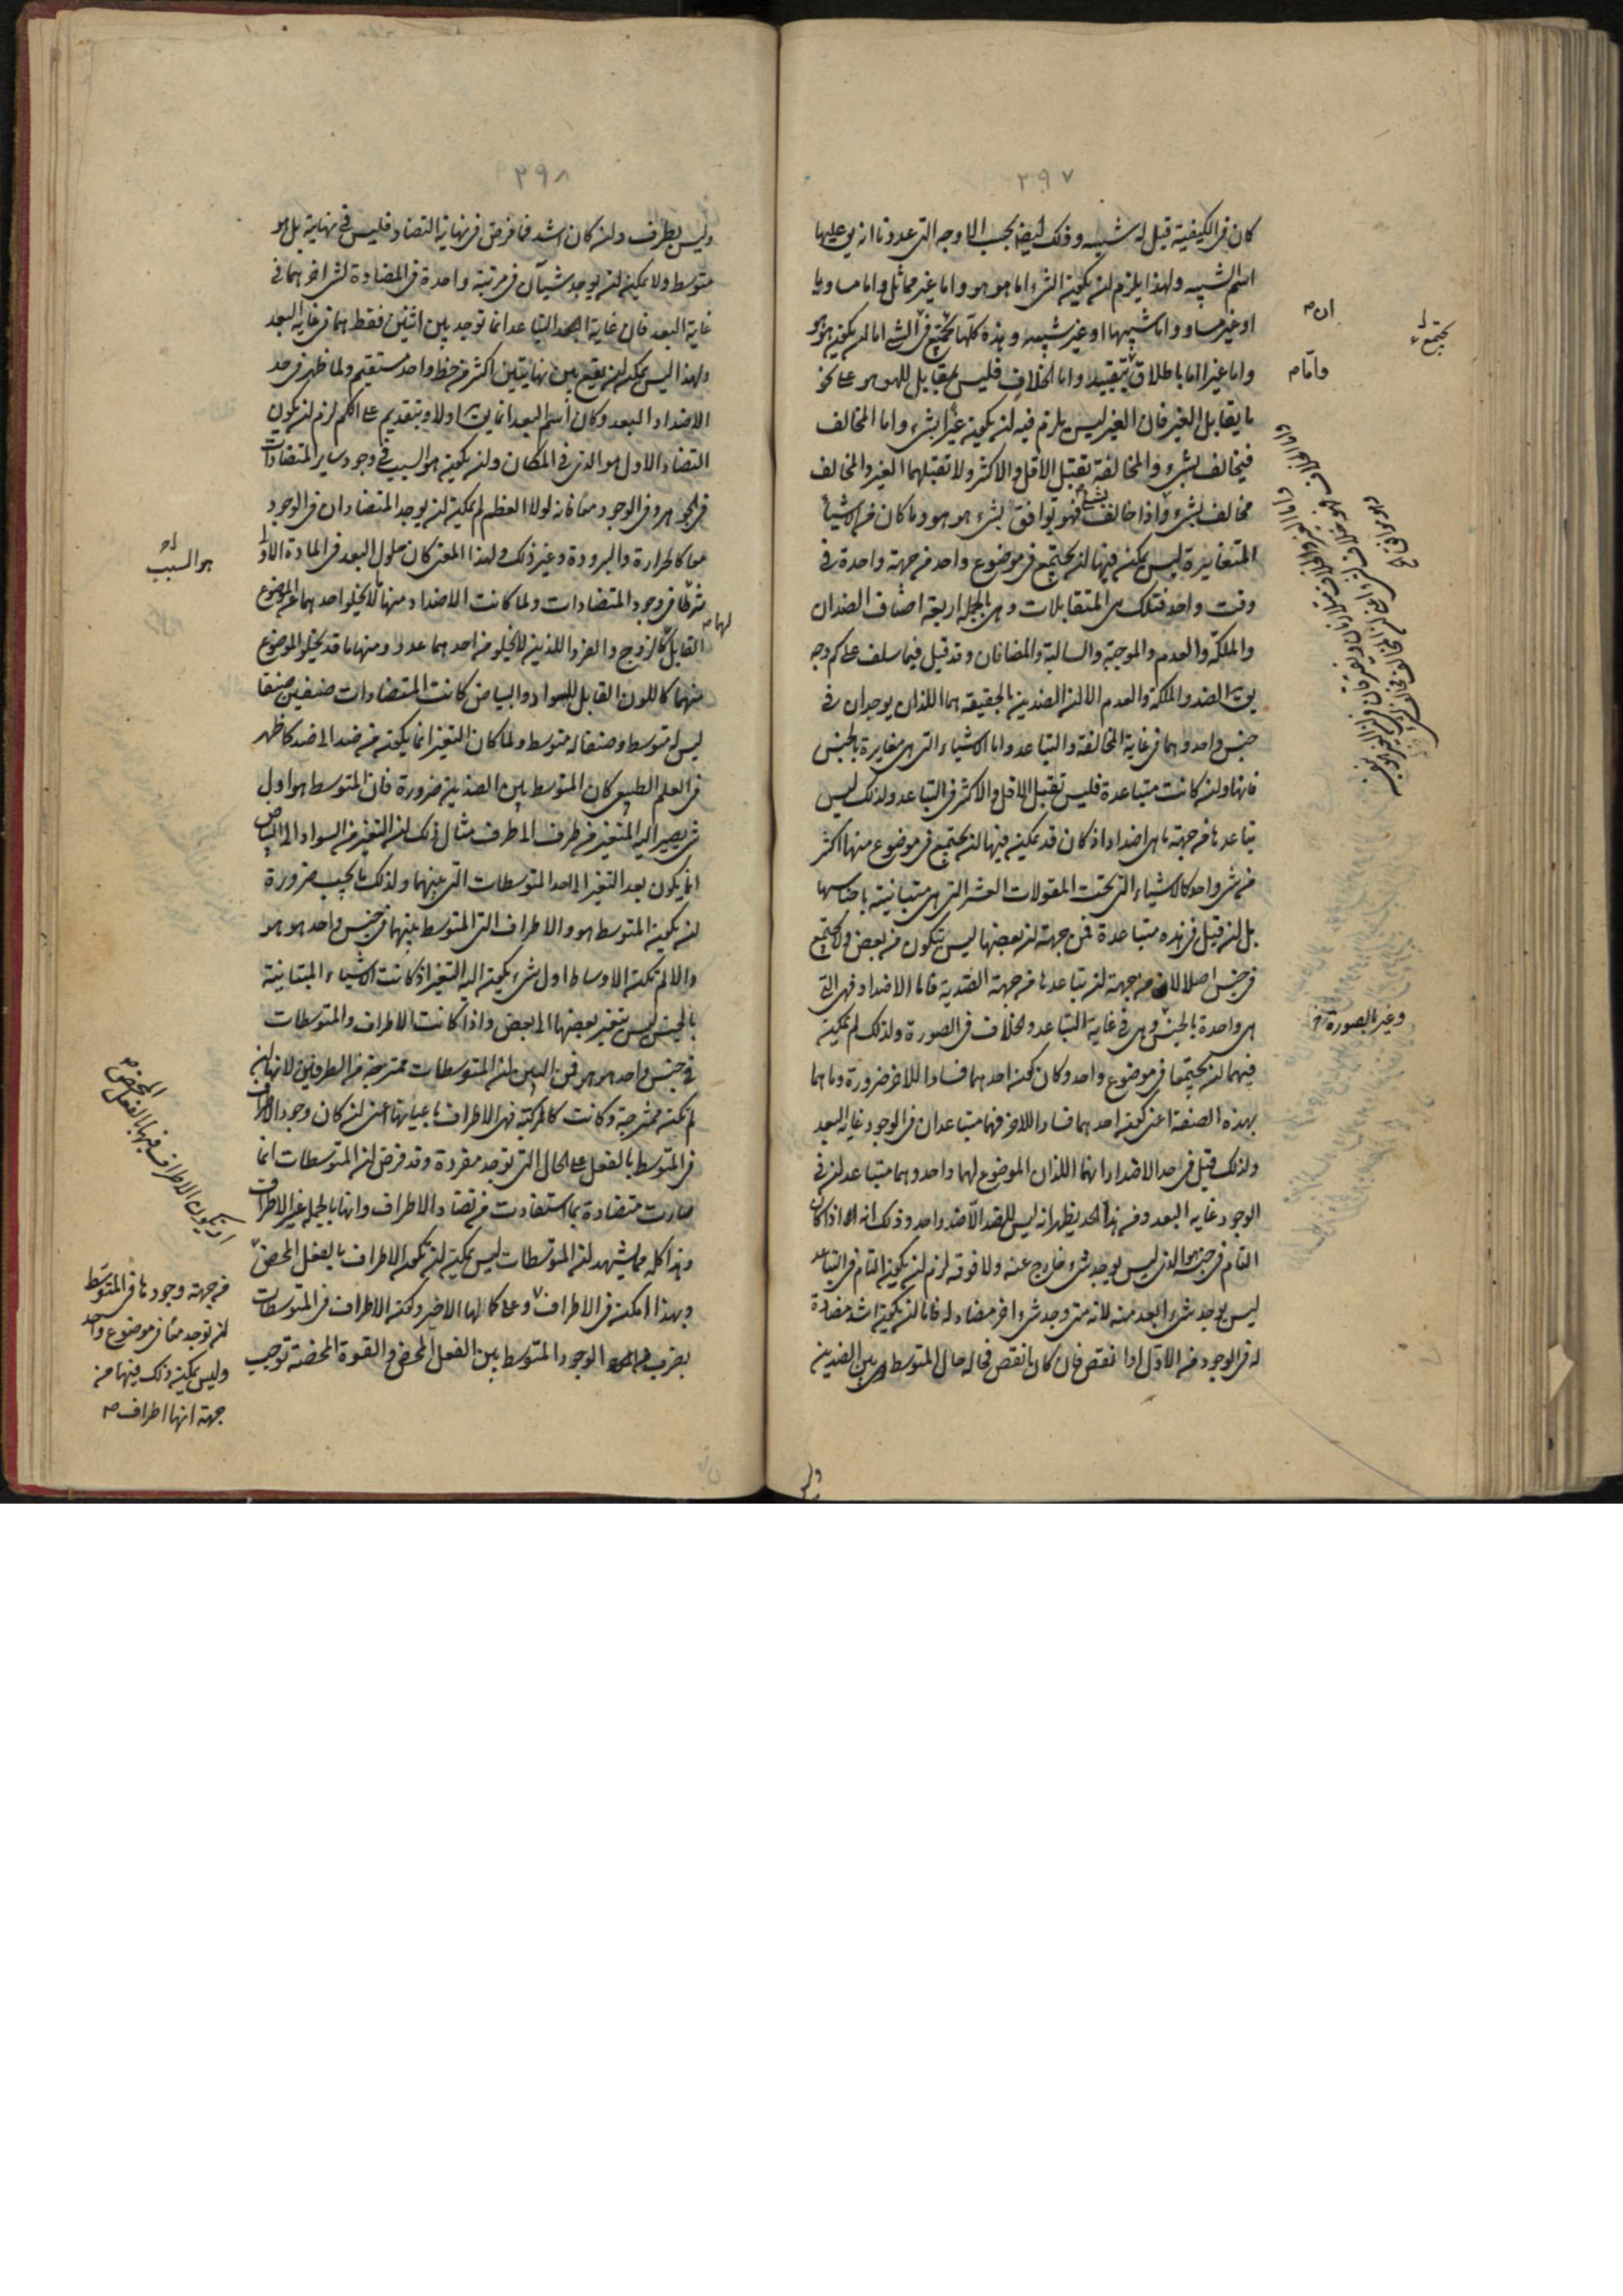 ٣٩٧
كان فى الكيفية قيل له شبيه وذلك ايضا بحسب الاوجه التى عددنا انه يق عليها
اسم الشبيه ولهذا يلزم ان يكون الشىء اما هو هو واما غير مماثل واما مساويا
او غير مساو واما شبيها او غير شبيه وهذه كلها تجتمع فى الشىء اما ان يكون هو هو
واما غيرا اما باطلاق بتقييد واما الخلاف فليس بمقابل للهو هو على نحو
ما يقابل الغير فان الغير ليس يلزم فيه ان يكون غيرا بشىء واما المخالف
فيخالف بشىء والمخالفة تقبل الاقل والاكثر ولا تقبلهما الغير والمخالف
مخالف بشىء واذا خالف بشىء فهو يوافق بشىء هو هو وما كان من الاشياء
المتغايرة ليس يمكن فيها ان يجتمع فى موضوع واحد من جهة واحدة فى
وقت واحد فتلك هى المتقابلات وهى بالجملة اربعة اصناف الضدان
والملكة والعدم والموجبة والسالبة والمضافان وقد قيل فيما سلف على كم وجه
يق الضد والملكة والعدم الا ان الضدين بالحقيقة هما اللذان يوجدان فى
جنس واحد وهما فى غاية المخالفة والتباعد واما الاشياء التى هى مغايرة بالجنس
فانها وان كانت متباعدة فليس تقبل الاقل والاكثر فى التباعد ولذلك ليس
تباعدها من جهة ما هى اضداد اذ كان قد يمكن فيها ان يجتمع فى موضوع منها اكثر
من شىء واحد كالاشياء التى تحت المقولات العشر التى هى متباينة باجناسها
بل ان قيل فى هذه متباعدة فمن جهة ان بعضها ليس يتكون من بعض ولا تجتمع
فى جنس اصلا لا من جهة ان تباعدها من جهة الضدية فاما الاضداد فهى التى
هى واحدة بالجنس وهى فى غاية التباعد والخلاف فى الصورة ولذلك لم يمكن
فيهما ان يجتمعا فى موضوع واحد وكان كون احدهما فسادا للاخر ضرورة وما هما
بهذه الصفة اعنى كون احدهما فسادا للاخر فهما متباعدان فى الوجود غاية البعد
ولذلك قيل فى حد الاضداد انهما اللذان الموضوع لهما واحد وهما متباعدان فى
الوجود غاية البعد ومن هذا الحد يظهر انه ليس للضد الا ضد واحد وذلك انه اذا كان
التام فى جنس هو الذى ليس يوجد شىء خارج عنه ولا فوقه لزم ان يكون التام فى التباعد
ليس يوجد شىء ابعد منه لانه متى وجد شىء اخر مضاد له فاما ان يكون اشد مضادة
له فى الوجود من الاول او انقص فان كان انقص فحاله حال المتوسط بين الضدين
وليس
ان
واما
يجتمع
وغير بالصورة
٣٩٨
وليس بطرف وان كان اشد فما فرض فى نهاية التضاد فليس فى نهاية بل هو
متوسط ولا يمكن ان يوجد شيآن فى مرتبة واحدة فى المضادة لشىء اخر هما فى
غاية البعد فان غاية التباعد انما توجد بين اثنين فقط هما فى غاية البعد
ولهذا ليس يمكن ان يقع بين نهايتين اكثر من خط واحد مستقيم ولما ظهر فى حد
الاضداد البعد وكان اسم البعد انما يق اولا وبتقديم على الكم لزم ان يكون
التضاد الاول هو الذى فى المكان وان يكون هو السبب فى وجود ساير المتضادات
فى الجوهر وفى الوجود معا فانه لولا العظم لم يمكن ان يوجد المتضادان فى الوجود
معا كالحرارة والبرودة وغير ذلك ولهذا المعنى كان حلول البعد فى المادة الاولى
شرطا فى وجود المتضادات ولما كانت الاضداد منها ما لا يخلو احدهما عن الموضوع
القابل لهما كالزوج والفرد اللذين لا يخلو من احدهما عدد ومنها ما قد يخلو الموضوع
منهما كاللون القابل للسواد والبياض كانت المتضادات صنفين صنفا
ليس له متوسط وصنفا له متوسط ولما كان التغير انما يكون من ضد الى ضد كما ظهر
فى العلم الطبيعى كان المتوسط بين الضدين ضرورة فان المتوسط هو اول
شىء يصير اليه المتغير من طرف الى طرف مثال ذلك ان التغير من السواد الى البياض
انما يكون بعد التغير الى احد المتوسطات التى بينهما ولذلك ما يجب ضرورة
ان يكون المتوسط هو والاطراف التى المتوسط بينهما فى جنس واحد هو هو
والا لم تكن الاوساط اول شىء يكون اليه التغير اذ كانت الاشياء المتباينة
بالجنس ليس يتغير بعضها الى بعض واذا كانت الاطراف والمتوسطات
فى جنس واحد هو هو فمن البين ان المتوسطات ممتزجة من الطرفين لانها ان
لم تكن ممتزجة وكانت كالمركبة فهى الاطراف باعيانها اعنى ان كان وجود الاطراف
فى المتوسط بالفعل على الحال التى توجد مفردة وقد فرض ان المتوسطات انما
صارت متضادة بما استفادت من تضاد الاطراف وانها بالجملة غير الاطراف
وهذا كله مما يشهد ان المتوسطات ليس يمكن ان تكون الاطراف بالفعل المحض
وبهذا امكن فى الاطراف وعلى كمالها الاخير وكون الاطراف فى المتوسطات
بضرب من الوجود المتوسط بين الفعل المحض والقوة المحضة توجب
هو السبب
لهما
او يكون الاطراف فيها بالفعل المحض
من جهة وجودها فى المتوسط
ان توجد معا فى موضوع واحد
وليس يمكن ذلك فيها من
جهة انها اطراف